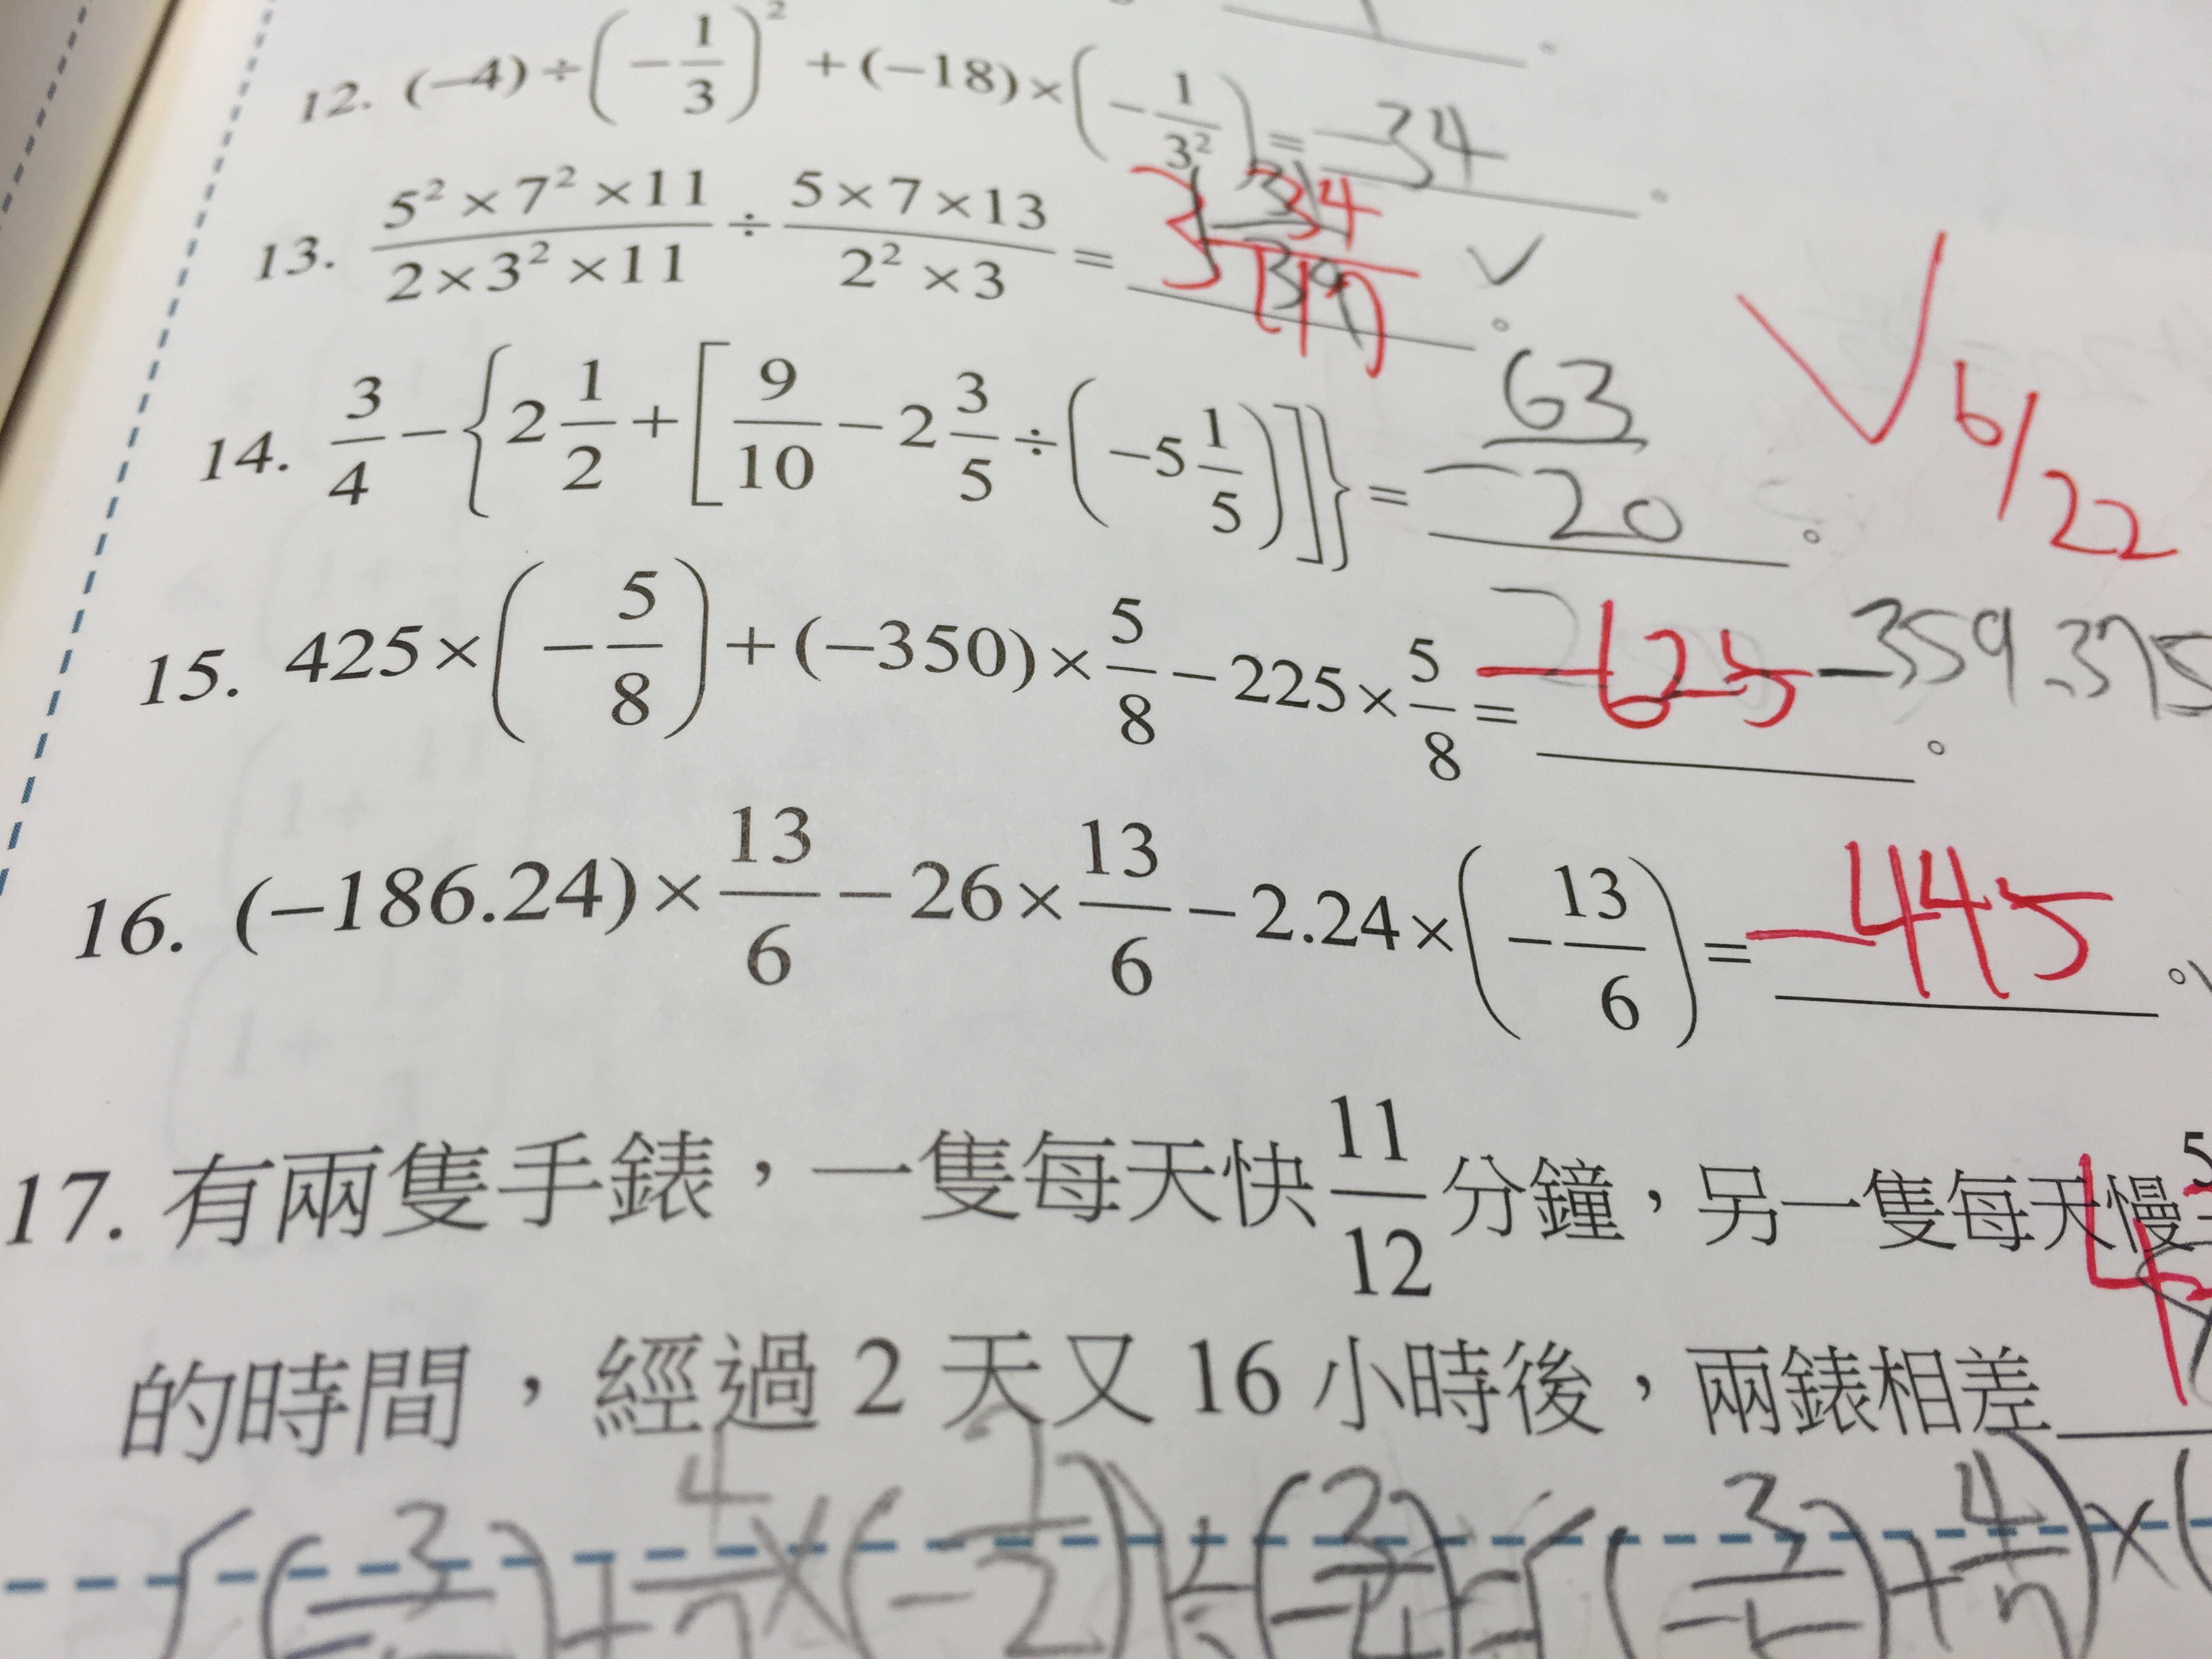 12. (−4)÷(−1/3)²+(−18)×(−1/3²)=−34。
13. 5²×7²×11/2×3²×11÷5×7×13/2²×3= 34 39 ✓。
14. 3/4−{2 1/2+[9/10−2 3/5÷(−5 1/5)]}=−63/20。
✓6/22
15. 425×(−5/8)+(−350)×5/8−225×5/8=−625 −359.375。
16. (−186.24)×13/6−26×13/6−2.24×(−13/6)=−445。
17. 有兩隻手錶，一隻每天快11/12分鐘，另一隻每天慢5
的時間，經過 2 天又 16 小時後，兩錶相差